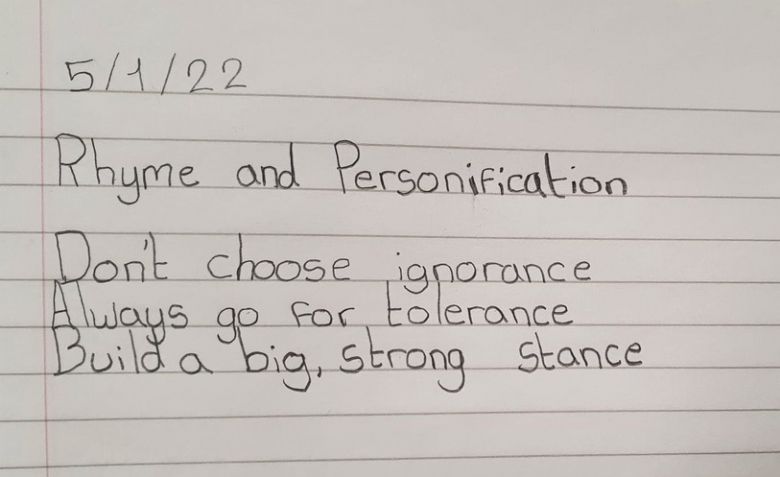 5/1/22
Rhyme and Personification
Don't choose ignorance
Always go for tolerance
Build a big, strong stance